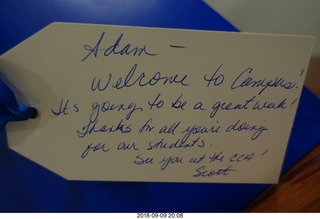 Adam -
Welcome to Campus!
It's going to be a great week!
Thanks for all you're doing
for our students.
See you at the CCH!
Scott
2018-09-09 20:08